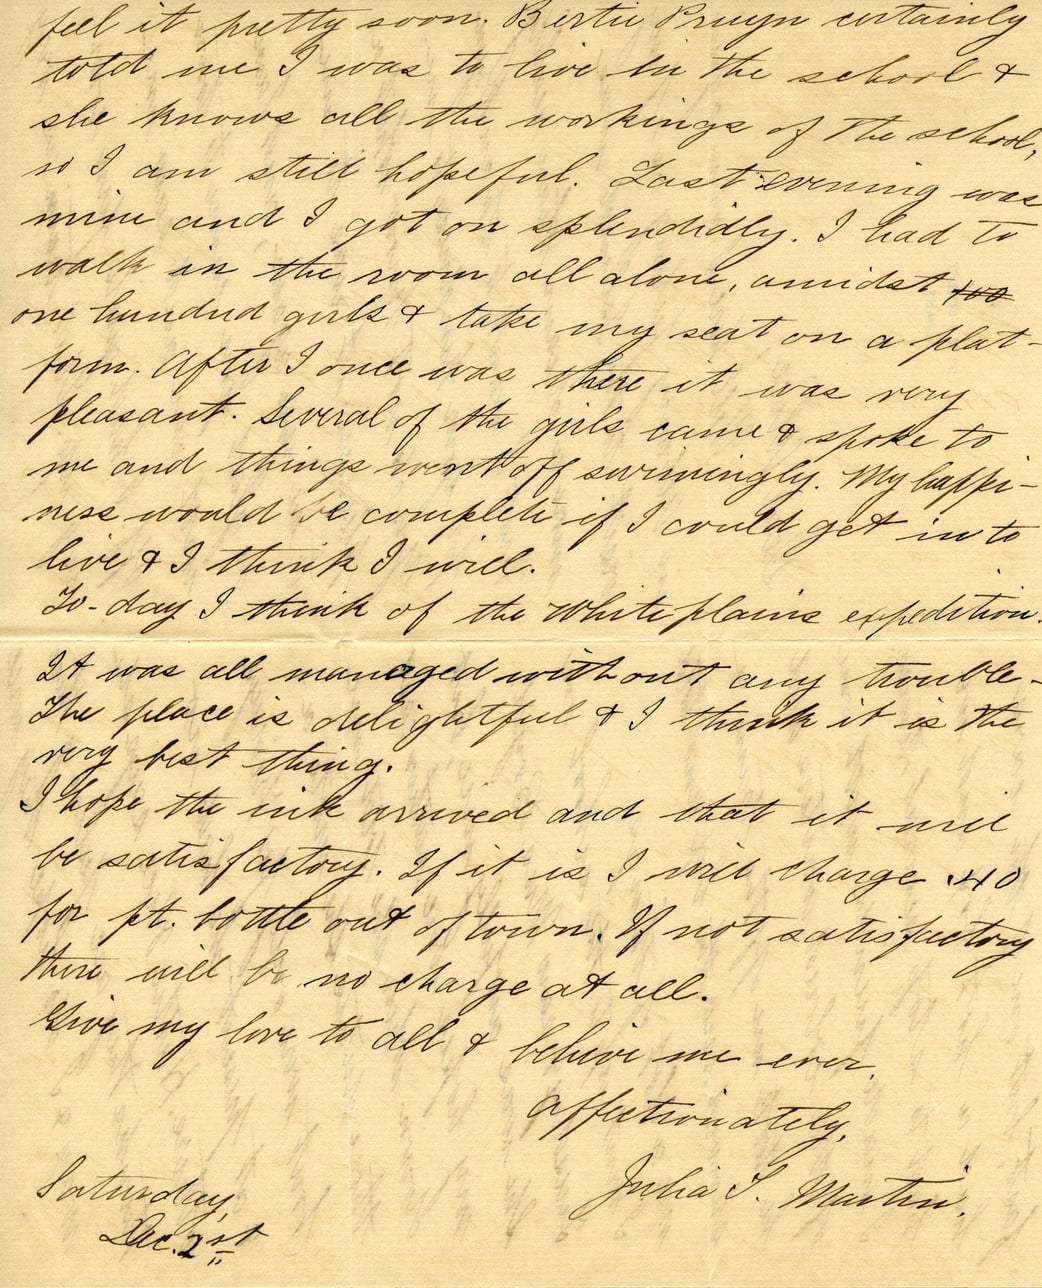 feel it pretty soon. Bertie Pruyn certainly
told me I was to live in the school &
she knows all the workings of the school,
so I am still hopeful. Last evening was
mine and I got on splendidly. I had to
walk in the room all alone, amidst 100
one hundred girls & take my seat on a plat-
form. After I once was there it was very
pleasant. Several of the girls came & spoke to
me and things went off swimingly. My happi-
ness would be complete if I could get in to
live & I think I will.
To-day I think of the White plains expedition.
It was all managed without any trouble-
The place is delightful & I think it is the
very best thing.
I hope the ink arrived and that it will
be satisfactory. If it is I will charge .40
for pt. bottle out of town. If not satisfactory
there will be no charge at all.
Give my love to all & believe me ever,
affectionately,
Julia T. Martin.
Saturday,
Dec. 21st